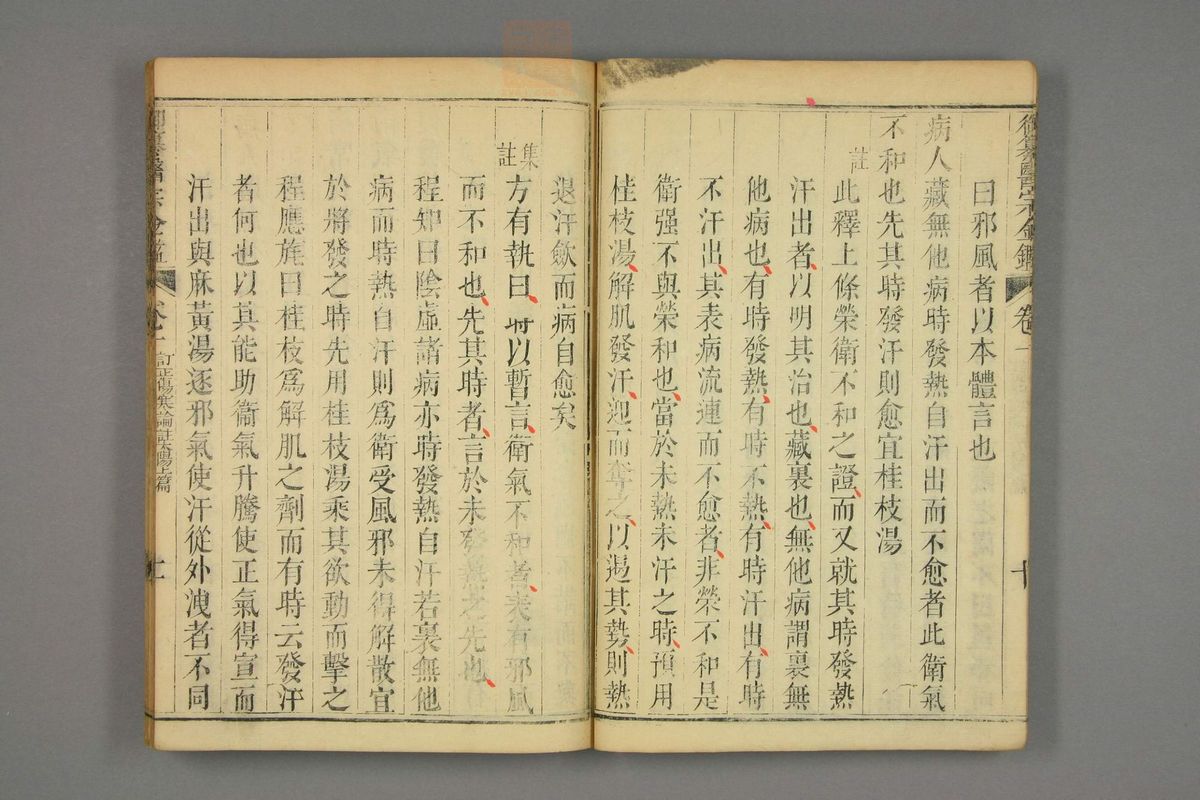 御纂醫宗金鑑 卷一
曰邪風者以本體言也
病人藏無他病時發熱自汗出而不愈者此衛氣
不和也先其時發汗則愈宜桂枝湯
註
此釋上條榮衛不和之證而又就其時發熱
汗出者以明其治也藏裏也無他病謂裏無
他病也有時發熱有時不熱有時汗出有時
不汗出其表病流連而不愈者非榮不和是
衛强不與榮和也當於未熱未汗之時預用
桂枝湯解肌發汗迎而奪之以遏其勢則熱
退汗歛而病自愈矣
集註
方有執曰時以暫言衛氣不和者表有邪風
而不和也先其時者言於未發熱之先也
程知曰陰虛諸病亦時發熱自汗若裏無他
病而時熱自汗則爲衛受風邪未得解散宜
於將發之時先用桂枝湯乘其欲動而擊之
程應旄曰桂枝爲解肌之劑而有時云發汗
者何也以其能助衛氣升騰使正氣得宣而
汗出與麻黃湯逐邪氣使汗從外洩者不同
卷一 訂正傷寒論註太陽上篇